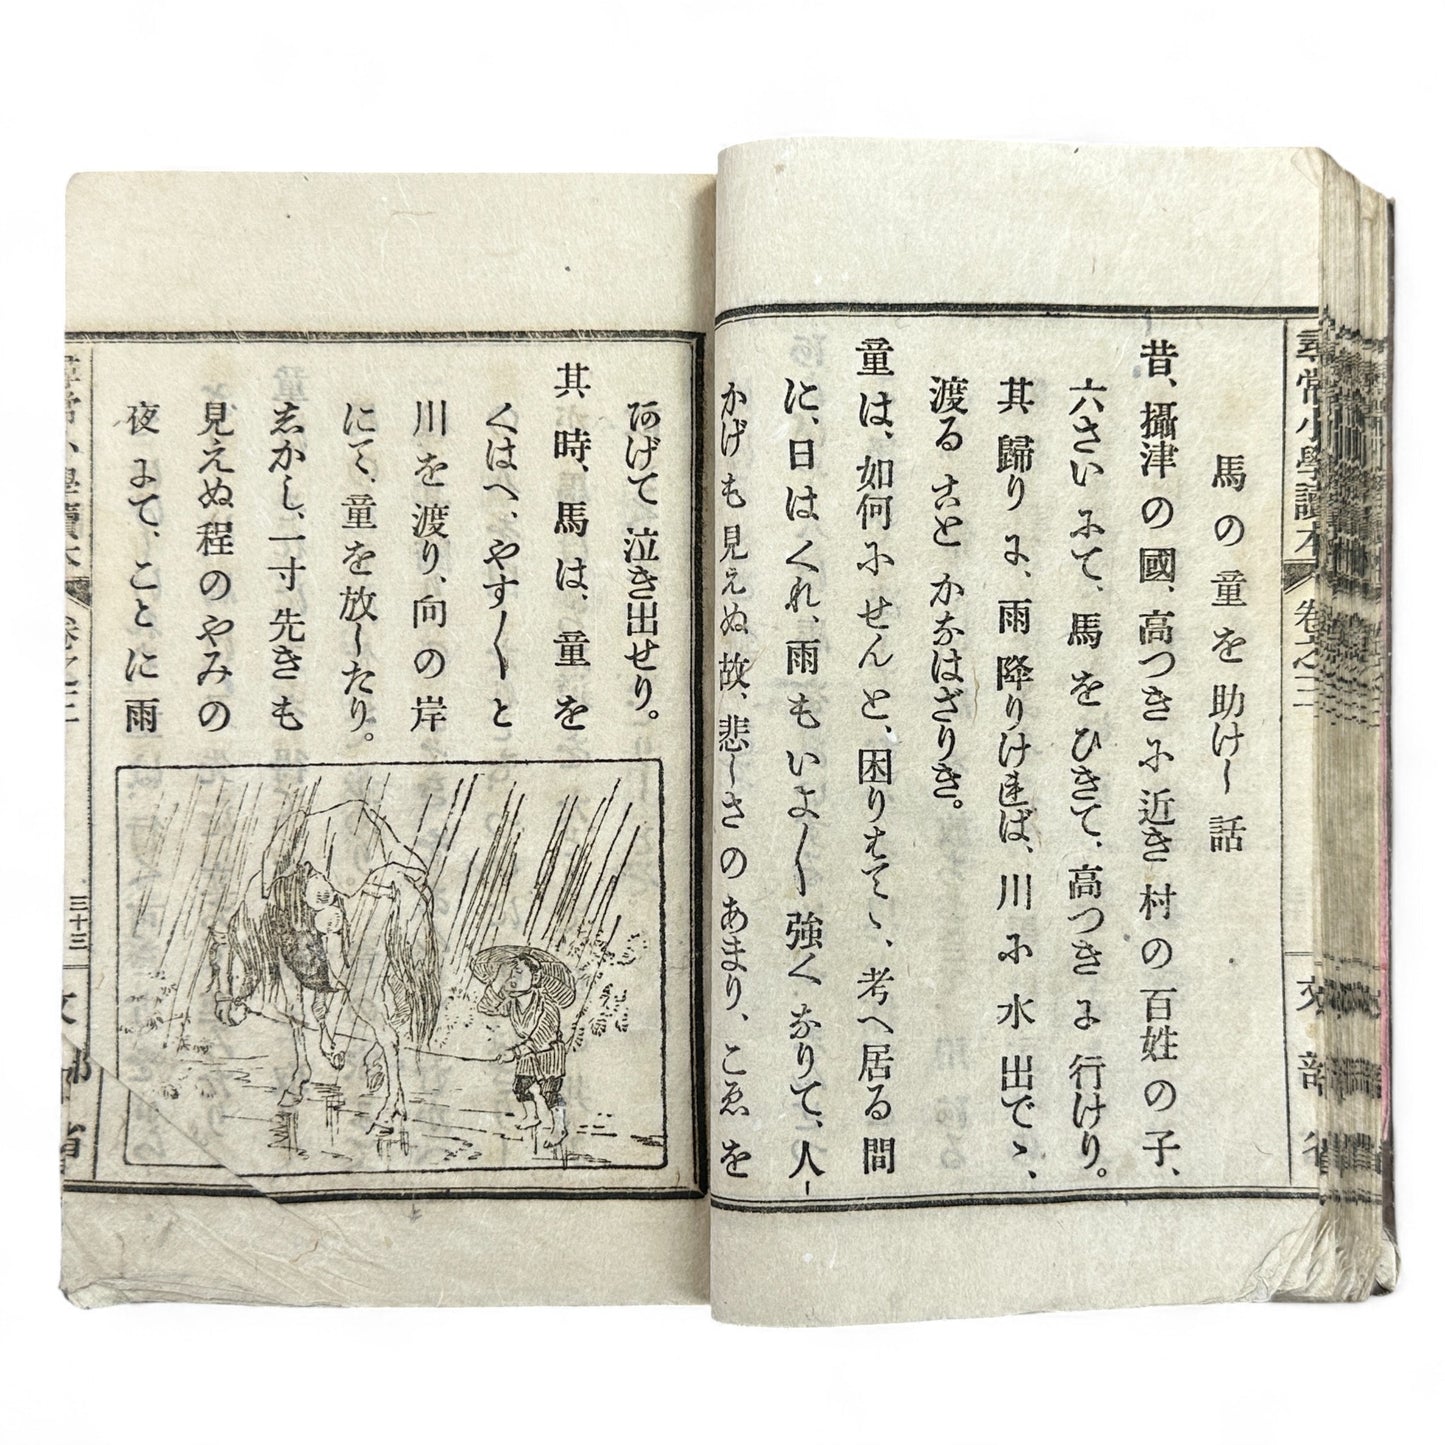 馬の童を助けし話
昔、攝津の國、高つきに近き村の百姓の子、
六さいにて、馬をひきて、高つきに行けり。
其歸りに、雨降りければ、川に水出でゝ、
渡ることかなはざりき。
童は、如何にせんと、困りはてゝ、考へ居る間
に、日はくれ、雨もいよ〳〵強くなりて、人
かげも見えぬ故、悲しさのあまり、こゑを
あげて泣き出せり。
其時、馬は、童を
くはへ、やす〳〵と
川を渡り、向の岸
にて、童を放したり。
しかし、一寸先きも
見えぬ程のやみの
夜にて、ことに雨
尋常小學讀本
卷之三
文部省
尋常小學讀本
卷之三
三十三
文部省